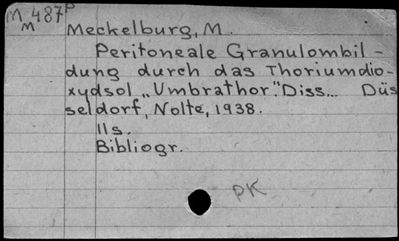 M 487P
M
Meckelburg, M.
Peritoneale Granulombil-
dung durch das Thoriumdio-
xydsol „Umbrathor". Diss... Düs
seldorf, Nolte, 1938.
11s.
Bibliogr.
PK